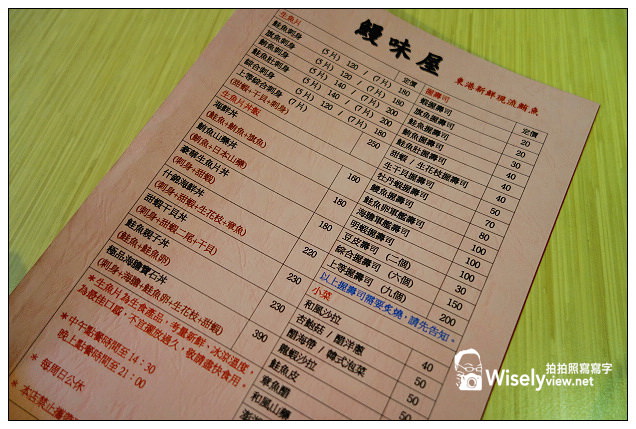 鰻味屋
東港新鮮現流鮪魚
生魚片
定價
鮭魚刺身 (5片) 120 / (7片) 180
旗魚刺身 (5片) 120 / (7片) 180
鮪魚刺身 (5片) 140 / (7片) 200
鮭魚肚刺身 (5片) 140 / (7片) 200
綜合刺身 (5片) 120 / (7片) 180
上等綜合刺身 (7片) 250
(甜蝦+干貝+刺身)
生魚片丼飯
海鮮丼 160
(鮭魚+鮪魚+旗魚)
鮪魚山藥丼 180
(鮪魚+日本山藥)
豪華生魚片丼 180
(刺身+甜蝦)
什錦海鮮丼 220
(刺身+甜蝦+生花枝+章魚)
甜蝦干貝丼 230
(刺身+甜蝦二尾+干貝)
鮭魚親子丼 230
(鮭魚+鮭魚卵)
極品海膽寶石丼 390
(刺身+海膽+鮭魚卵+生花枝+甜蝦)
*生魚片為生食產品，考量新鮮，冰涼溫度，
為最佳口感，不宜擺放過久，敬請盡快食用。
*中午點餐時間至 14：30
晚上點餐時間至 21：00
* 每周日公休
* 本店禁止攜
握壽司
定價
蝦握壽司 20
旗魚握壽司 20
鮭魚握壽司 30
鮪魚握壽司 40
鮭魚肚握壽司 40
甜蝦 / 生花枝握壽司 40
生干貝握壽司 50
牡丹蝦握壽司 70
鰻魚握壽司 80
鮭魚卵軍艦壽司 100
海膽軍艦壽司 100
明蝦握壽司 100
豆皮壽司 (二個) 30
綜合握壽司 (六個) 150
上等握壽司 (九個) 200
以上握壽司需要炙燒，請先告知。
小菜
和風沙拉 40
杏鮑菇 / 醋洋蔥
醋海帶 / 韓式泡菜
龍蝦沙拉
鮭魚皮 50
章魚醋 50
和風山藥
拍拍照寫寫字
Wiselyview.net